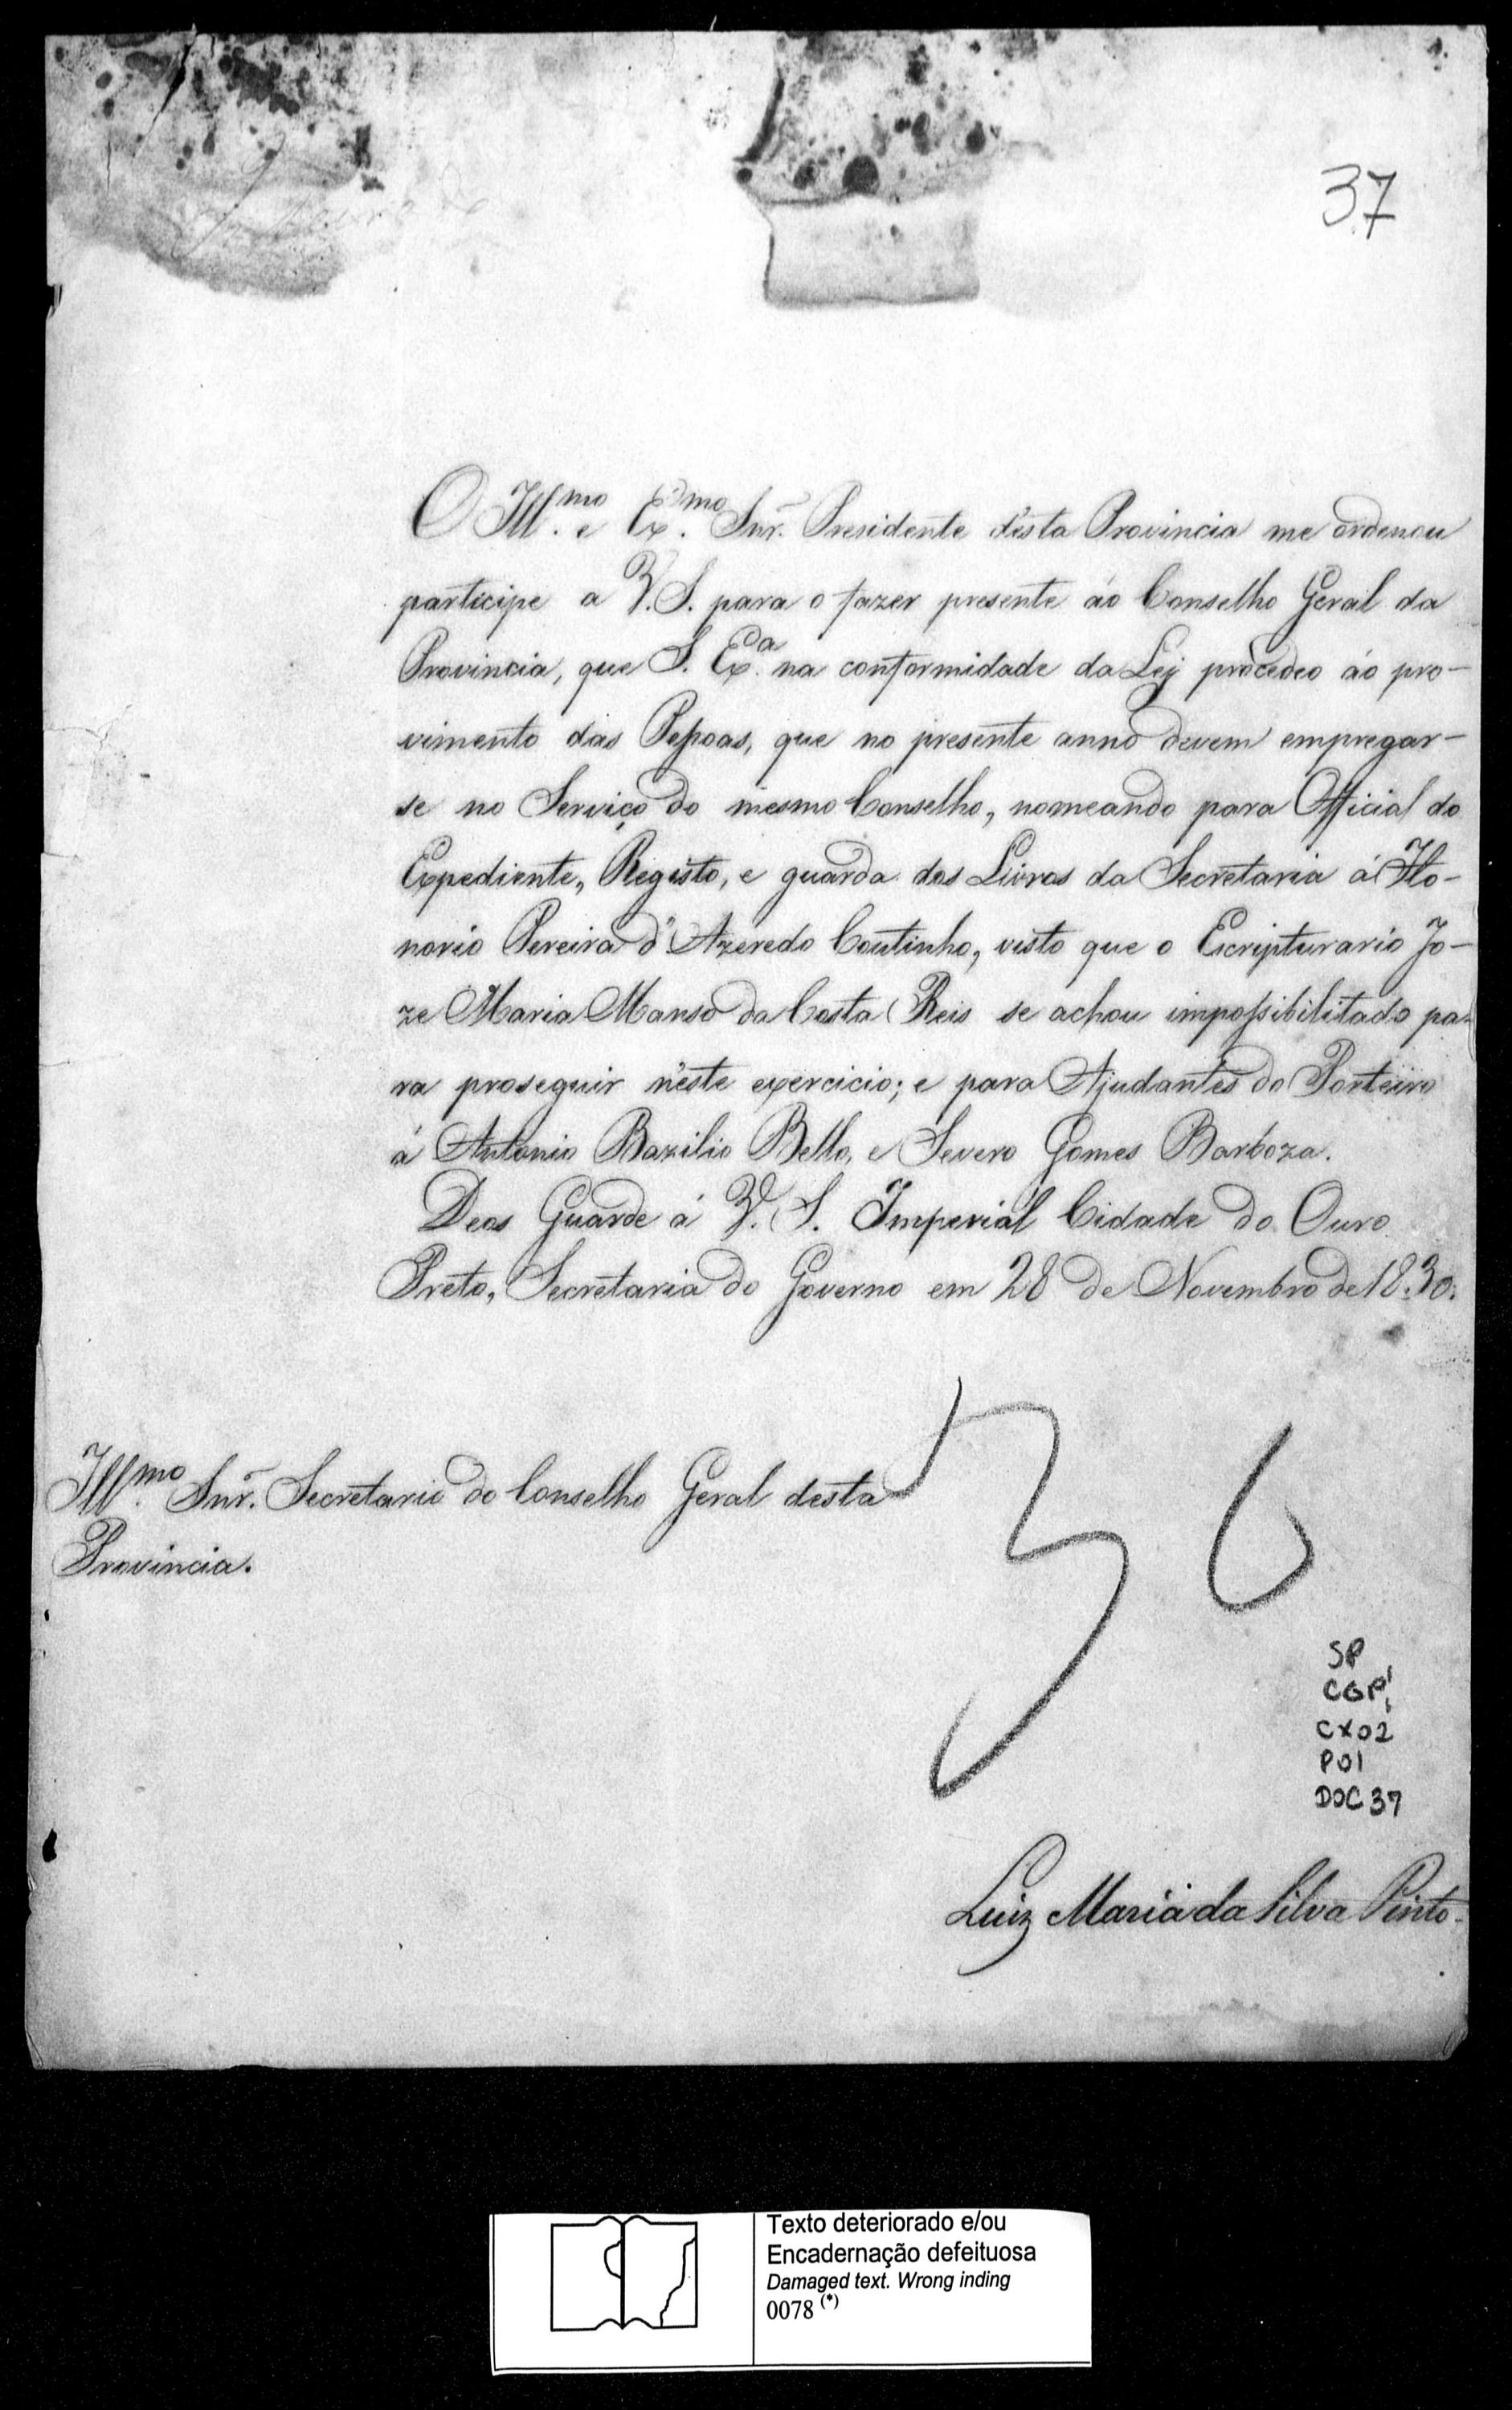 37
O Ill.mo e Ex.mo Snr. Presidente d'esta Provincia me ordenou
participe a V. S. para o fazer presente áo Conselho Geral da
Provincia, que S. Ex.a na conformidade da Ley procedeo áo pro-
vimento das Pessoas, que no presente anno devem empregar-
se no Serviço do mesmo Conselho, nomeando para Official do
Expediente, Registo, e guarda dos Livros da Secretaria á Ho-
norio Pereira d'Azeredo Coutinho, visto que o Escripturario Jo-
ze Maria Manso da Costa Reis se achou impossibilitado pa-
ra proseguir n'este exercicio; e para Ajudantes do Porteiro
á Antonio Bazilio Bello, e Severo Gomes Barboza.
Deos Guarde á V. S. Imperial Cidade do Ouro
Preto, Secretaria do Governo em 28 de Novembro de 1830.
Ill.mo Snr. Secretario do Conselho Geral desta
Provincia.
36
SP
CGP1
CX02
P01
DOC 37
Luiz Maria da Silva Pinto.
Texto deteriorado e/ou
Encadernação defeituosa
Damaged text. Wrong inding
0078 (*)